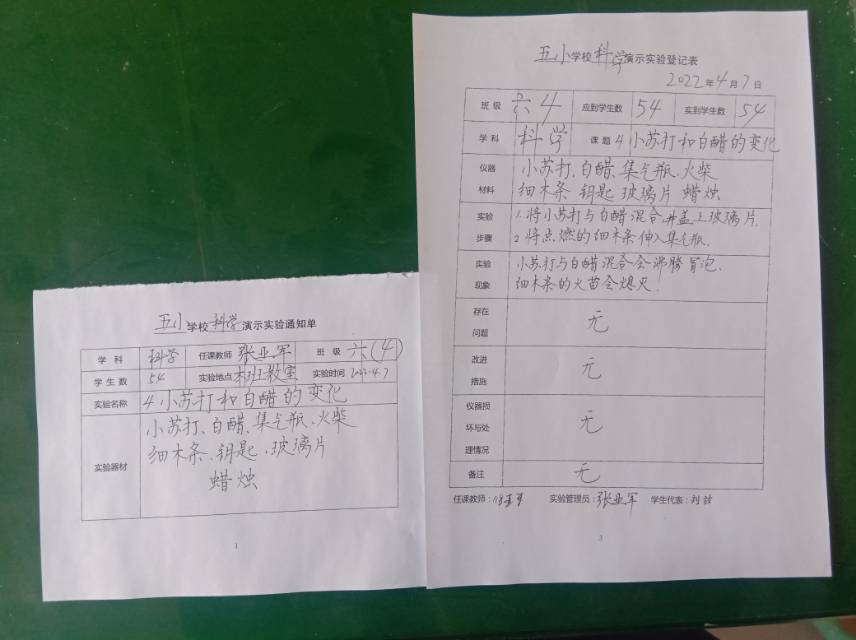 五小学校科学演示实验通知单
学科 科学 任课教师 张业军 班级 六(4)
学生数 54 实验地点 本班教室 实验时间 2022.4.7
实验名称 4 小苏打和白醋的变化
实验器材 小苏打、白醋、集气瓶、火柴
细木条、钥匙、玻璃片
蜡烛
1
五小学校科学演示实验登记表
2022年4月7日
班级 六4 应到学生数 54 实到学生数 54
学科 科学 课题 4 小苏打和白醋的变化
仪器材料 小苏打、白醋、集气瓶、火柴
细木条 钥匙 玻璃片 蜡烛
实验步骤 1. 将小苏打与白醋混合,并盖上玻璃片.
2 将点燃的细木条伸入集气瓶.
实验现象 小苏打与白醋混合会沸腾冒泡.
细木条的火苗会熄灭!
存在问题 无
改进措施 无
仪器损坏与处理情况 无
备注 无
任课教师: 实验管理员:张业军 学生代表:刘